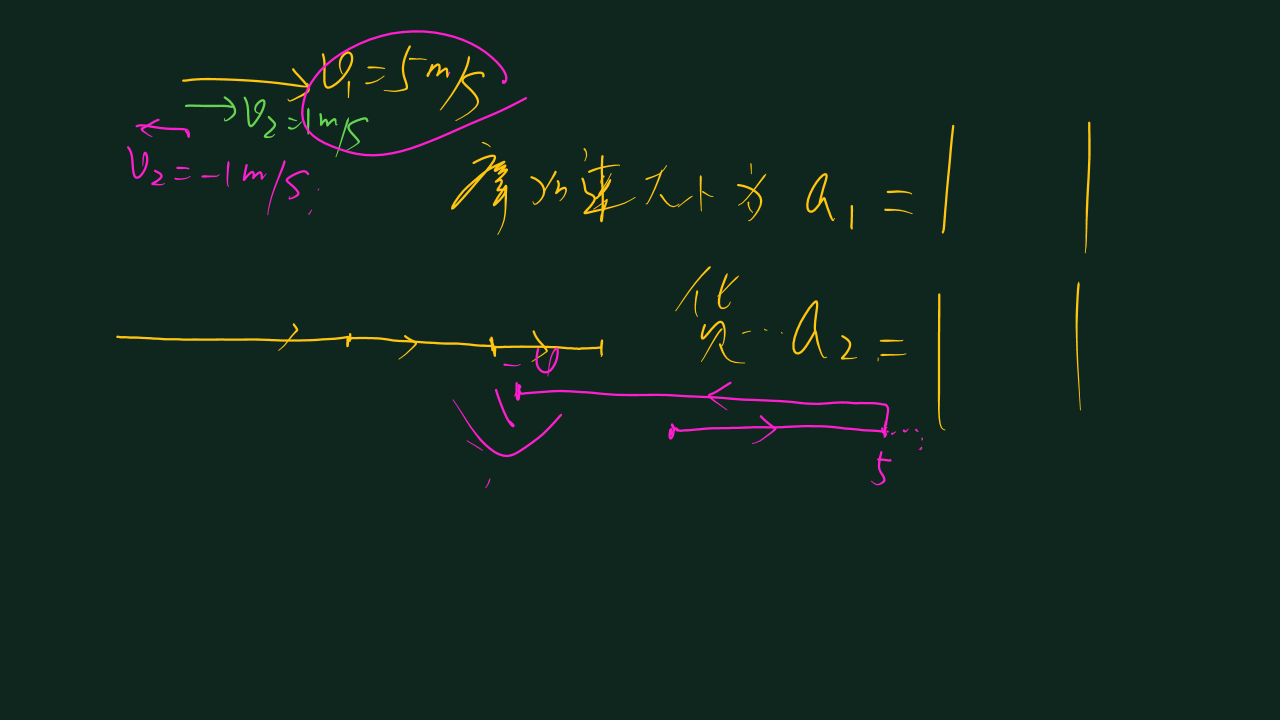 v₁=5m/s
v₂=1m/s
v₂=-1m/s.
速大小为 a₁=
a₂=
-v
5